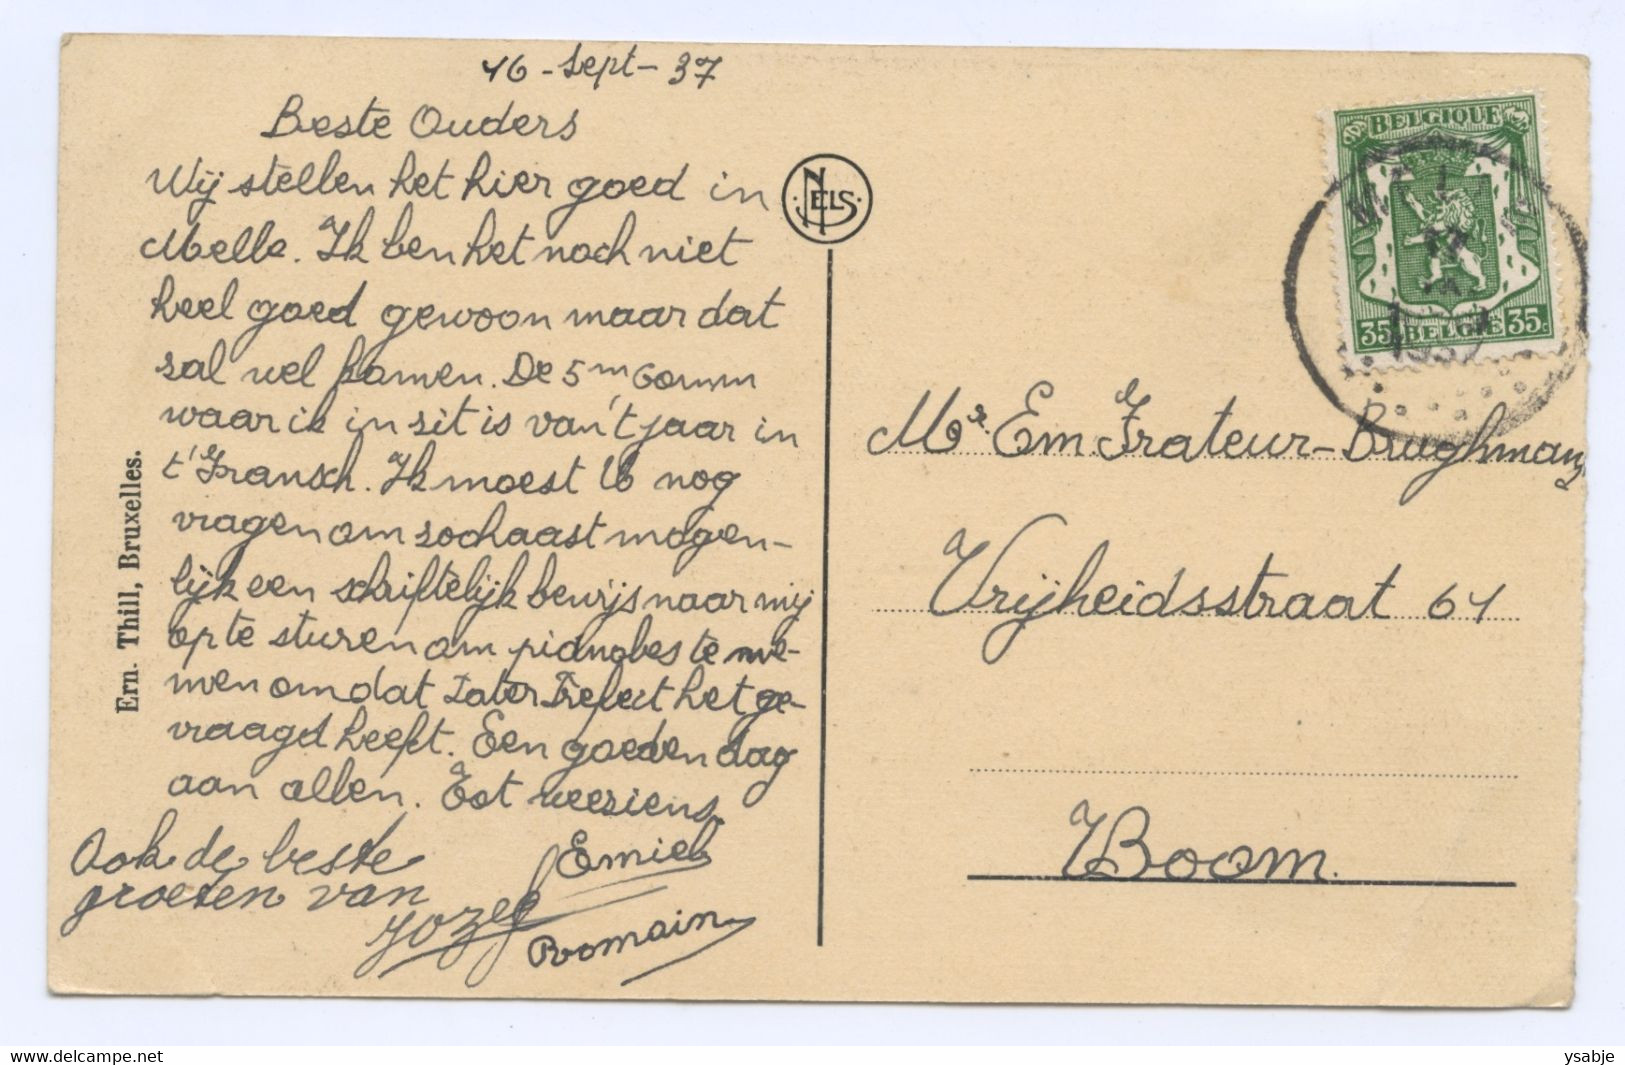 16 - Sept - 37
Beste Ouders
Wij stellen het hier goed in
Melle. Ik ben het noch niet
heel goed gewoon maar dat
zal wel komen. De 5m Comm
waar ik in zit is van 't jaar in
t' Fransch. Ik moest U nog
vragen om zoohaast mogen-
lijk een schriftelijk bewijs naar mij
op te sturen om pianoles te ne-
men omdat Pater Prefect het ge-
vraagd heeft. Een goeden dag
aan allen. Tot weeziens
Emiel
Ook de beste
groeten van
Jozef
Romain
Ern. Thill, Bruxelles.
NELS
BELGIQUE
35 BELGIE 35c
17
1937
Mr. Em Frateur-Brughmans
Vrijheidsstraat 61
Boom.
ysabje